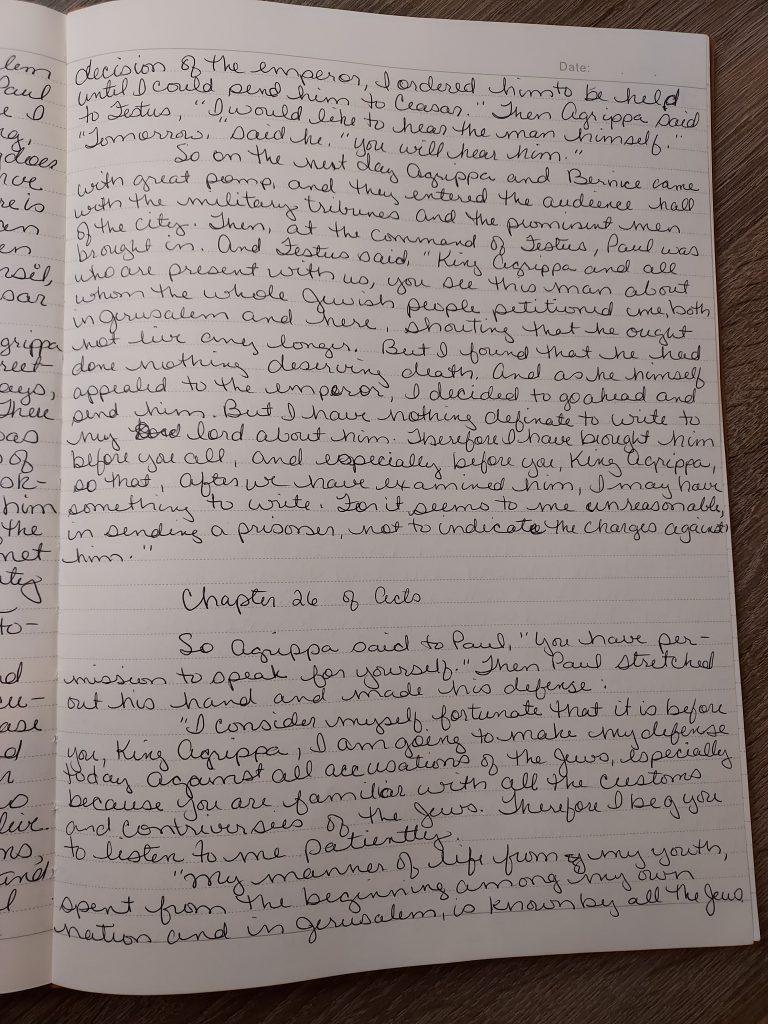 lem
Paul
e I
ng,
does
nce
re is
en
en
nsil,
sar
grippa
reet
ays,
There
was
of
ok-
him
the
met
to-
nd
cu-
ase
d
live.
ns,
and
Date:
decision of the emperor, I ordered him to be held
until I could send him to Ceasar." Then Agrippa said
to Festus, "I would like to hear the man himself."
"Tomorrow," said he, "you will hear him."
So on the next day Agrippa and Bernice came
with great pomp, and they entered the audience hall
with the military tribunes and the prominent men
of the city. Then, at the command of Festus, Paul was
brought in. And Festus said, "King Agrippa and all
who are present with us, you see this man about
whom the whole Jewish people petitioned me, both
in Jerusalem and here, shouting that he ought
not live any longer. But I found that he had
done nothing deserving death. And as he himself
appealed to the emperor, I decided to go ahead and
send him. But I have nothing definate to write to
my lord about him. Therefore I have brought him
before you all, and especially before you, King Agrippa,
so that, after we have examined him, I may have
something to write. For it seems to me unreasonable,
in sending a prisoner, not to indicate the charges against
him."
Chapter 26 of Acts
So Agrippa said to Paul, "You have per-
mission to speak for yourself." Then Paul stretched
out his hand and made his defense:
"I consider myself fortunate that it is before
you, King Agrippa, I am going to make my defense
today against all accusations of the Jews, especially
because you are familiar with all the customs
and contriversies of the Jews. Therefore I beg you
to listen to me patiently.
"My manner of life from my youth,
spent from the beginning among my own
nation and in Jerusalem, is known by all the Jews